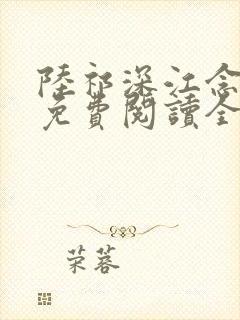 陸祁深江念
免費閱讀全
荣蓉